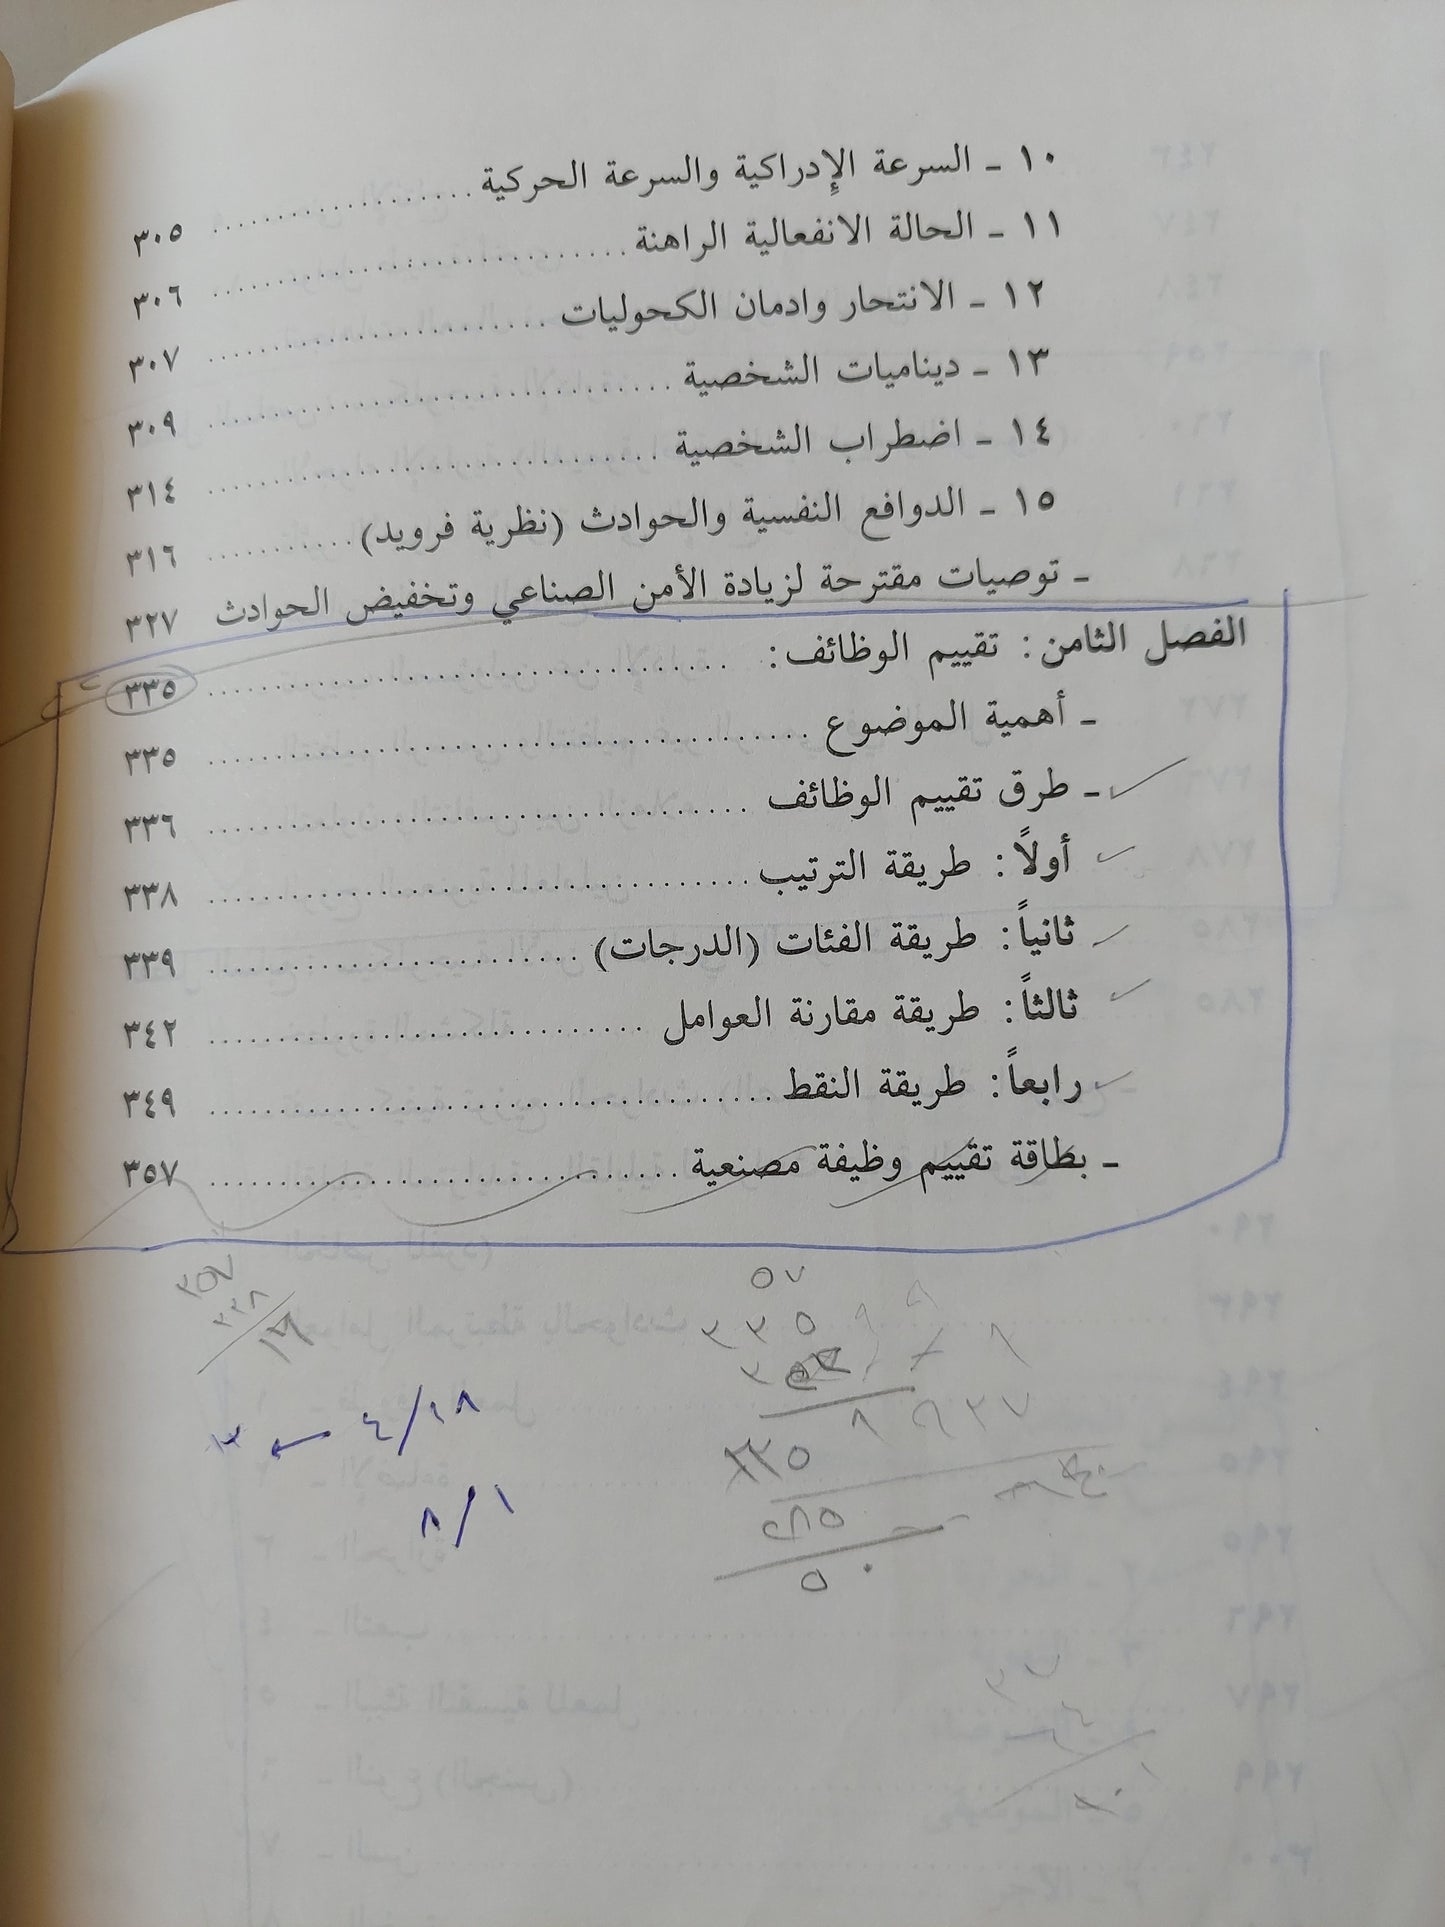 ١٠ ـ السرعة الإدراكية والسرعة الحركية .................... ٣٠٥
١١ ـ الحالة الانفعالية الراهنة .................... ٣٠٦
١٢ ـ الانتحار وادمان الكحوليات .................... ٣٠٧
١٣ ـ ديناميات الشخصية .................... ٣٠٩
١٤ ـ اضطراب الشخصية .................... ٣١٤
١٥ ـ الدوافع النفسية والحوادث (نظرية فرويد) ............ ٣١٦
ـ توصيات مقترحة لزيادة الأمن الصناعي وتخفيض الحوادث ٣٢٧
الفصل الثامن: تقييم الوظائف: .................... ٣٣٥
ـ أهمية الموضوع .................... ٣٣٥
ـ طرق تقييم الوظائف .................... ٣٣٦
أولاً: طريقة الترتيب .................... ٣٣٨
ثانياً: طريقة الفئات (الدرجات) .................... ٣٣٩
ثالثاً: طريقة مقارنة العوامل .................... ٣٤٢
رابعاً: طريقة النقط .................... ٣٤٩
ـ بطاقة تقييم وظيفة مصنعية .................... ٣٥٧
٥٧
٣٥٧
٣٣٨
٣٣٥
٤/١٨
٨/١
٢٨٥
٥٠